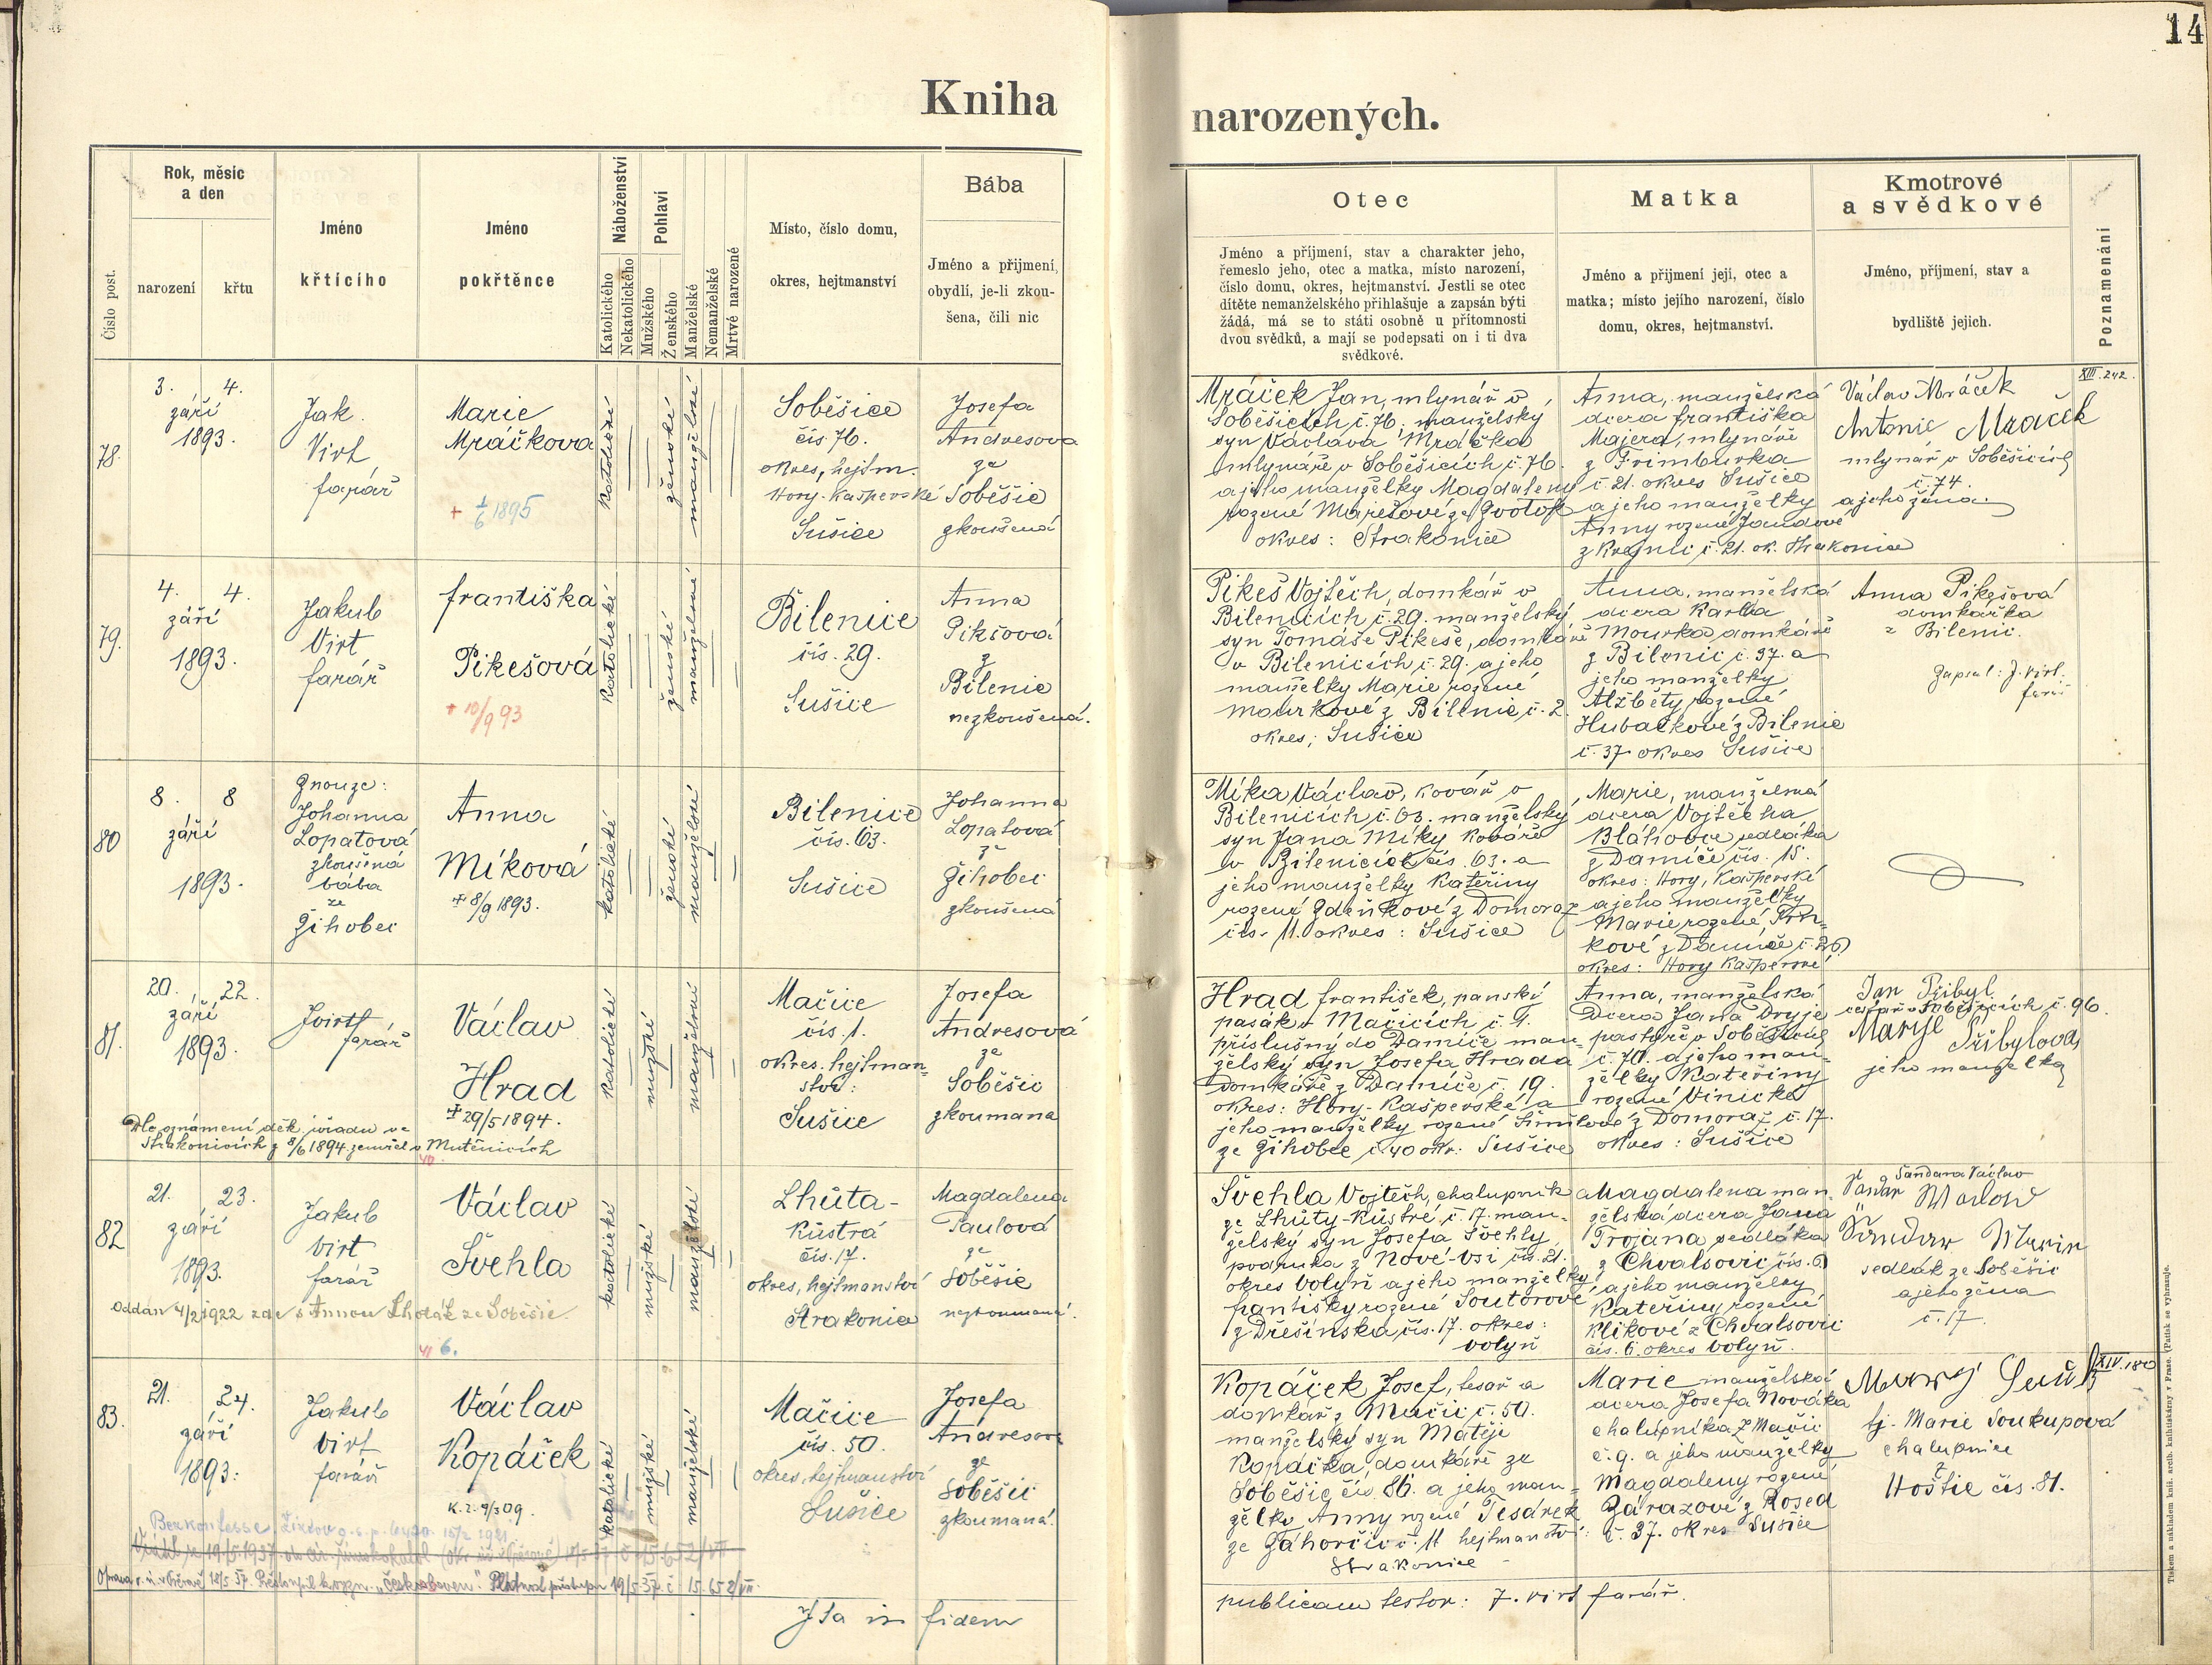 14
Kniha narozených.
Číslo post.
Rok, měsíc
a den
narození
křtu
Jméno
křtícího
Jméno
pokřtěnce
Náboženství
Katolického
Nekatolického
Pohlaví
Mužského
Ženského
Manželské
Nemanželské
Mrtvé narozené
Místo, číslo domu,
okres, hejtmanství
Bába
Jméno a přijmení,
obydlí, je-li zkou-
šena, čili nic
Otec
Jméno a příjmení, stav a charakter jeho,
řemeslo jeho, otec a matka, místo narození,
číslo domu, okres, hejtmanství. Jestli se otec
dítěte nemanželského přihlašuje a zapsán býti
žádá, má se to státi osobně u přítomnosti
dvou svědků, a mají se podepsati on i ti dva
svědkové.
Matka
Jméno a přijmení její, otec a
matka; místo jejího narození, číslo
domu, okres, hejtmanství.
Kmotrové
a svědkové
Jméno, příjmení, stav a
bydliště jejich.
Poznamenání
78.
3. 4.
září
1893.
Jak.
Virt
farář
Marie
Mráčkova
+ 1/6 1895
katolické
ženské
manželské
Soběšice
čís. 76.
okres, hejtm.
Hory-Kašperské
Sušice
Josefa
Andresova
ze
Soběšic
zkoušená
Mráček Jan, mlynář v
Soběšicích č. 76. manželský
syn Václava Mráčka
mlynáře v Soběšicích č. 76.
a jeho manželky Magdaleny
rozené Marešové ze
okres: Strakonice
Anna, manželská
dcera Františka
Majera, mlynáře
z Frimburka
č. 21. okres Sušice
a jeho manželky
Anny rozené Jandové
z č. 21. ok. Strakonice
Václav Mráček
Antonie Mraček
mlynář v Soběšicích
č. 74.
a jeho žena.
XIII. 242.
79.
4. 4.
září
1893.
Jakub
Virt
farář
Františka
Pikešová
+ 10/9 93
katolické
ženské
manželské
Bilenice
čís. 29.
Sušice
Anna
Pikšová
z
Bilenic
nezkoušená.
Pikeš Vojtěch, domkář v
Bilenicích č. 29. manželský
syn Tomáše Pikeše, domkáře
v Bilenicích č. 29. a jeho
manželky Marie rozené
Mourkové z Bilenic č. 2.
okres, Sušice
Anna, manželská
dcera Karla
Mourka domkáře
z Bilenic č. 37. a
jeho manželky
Alžběty rozené
Hubačkové z Bilenic
č. 37 okres Sušice
Anna Pikešová
domkářka
z Bilenic.
Zapsal: J. Virt.
farář
80
8. 8
září
1893.
Znouze:
Johanna
Lopatová
zkoušená
bába
ze
Žihobci
Anna
Míková
+ 8/9 1893.
katolické
ženské
manželské
Bilenice
čís. 63.
Sušice
Johanna
Lopatová
ze
Žihobci
zkoušená
Míka Václav, kovář v
Bilenicích č. 63. manželský
syn Jana Míky kováře
v Bilenicích čís. 63. a
jeho manželky Kateřiny
rozené Zdeňkové z Domoraz
čís. 11. okres: Sušice
Marie, manželská
dcera Vojtěcha
Bláhovce sedláka
z Damíče čís. 15.
okres: Hory, Kašperské
a jeho manželky
Marie rozené
kové z Damíče č. 26
okres: Hory Kašperské
81.
20. 22.
září
1893.
J. Virt
farář
Václav
Hrad
+ 29/5 1894.
Dle oznámení děk. úřadu ve
Strakonicích z 8/6 1894 zemřel v Mutěnicích
katolické
mužské
manželské
Mačice
čís. 1.
okres. hejtman-
ství:
Sušice
Josefa
Andresová
ze
Soběšic
zkoumana
Hrad František, panský
pasák v Mačicích č. 1.
příslušný do Damíče man-
želský syn Josefa Hrada
domkáře z Damíče č. 19.
okres: Hory-Kašperské a
jeho manželky rozené
ze Žihobce č. 40 okr. Sušice
Anna, manželská
dcera Jana
pastýře v Soběšicích
č. 70. a jeho man-
želky Kateřiny
rozené Vinické
z Domoraz č. 17.
okres: Sušice
Jan Přibyl
cestář v Soběšicích č. 96.
Marye Přibylova
jeho manželka
82
21. 23.
září
1893.
Jakub
Virt
farář
40.
Václav
Švehla
Oddán 4/2 1922 zde s Annou Lhoták ze Soběšic.
katolické
mužské
manželské
Lhůta-
Kůstrá
čís. 17.
okres, hejtmanství
Strakonice
Magdalena
Paulová
ze
Soběšic
nezkoumaná.
Švehla Vojtěch, chalupník
ze Lhůty-Kůstré č. 17. man-
želský syn Josefa Švehly,
podruha z Nové-vsi čís. 21.
okres Volyň a jeho manželky
Františky rozené Soutorové
z Dřešínska, čís. 17. okres:
Volyň
Magdalena man-
želská dcera Jana
Trojana sedláka
z Chvalšovic čís. 6
a jeho manželky
Kateřiny rozené
Klikové z Chvalšovic
čís. 6. okres Volyň.
Šandera Václav
sedlák ze Soběšic
a jeho žena
č. 17.
83.
21. 24.
září
1893.
Jakub
Virt
farář
41 6.
Václav
Kopáček
katolické
mužské
manželské
Mačice
čís. 50.
okres, hejtmanství
Sušice
Josefa
Andresova
ze
Soběšic
zkoumaná.
Kopáček Josef, tesař a
domkář z Mačic č. 50.
manželský syn Matěje
Kopáčka, domkáře ze
Soběšic čís. 86. a jeho man-
želky Anny rozené Tesárek
ze Záhorčic č. 11 hejtmanství:
Strakonice
Marie manželská
dcera Josefa Nováka
chalupníka z Mačic
č. 9. a jeho manželky
Magdaleny rozené
z Rosed
č. 37. okres Sušice
tj. Marie Soukupová
chalupnice
z
Hoštic čís. 81.
XIV. 180
Ita in fidem publicam testor: J. Virt farář.
Tiskem a nákladem kníž. arcib. knihtiskárny v Praze. (Patisk se vyhrazuje.